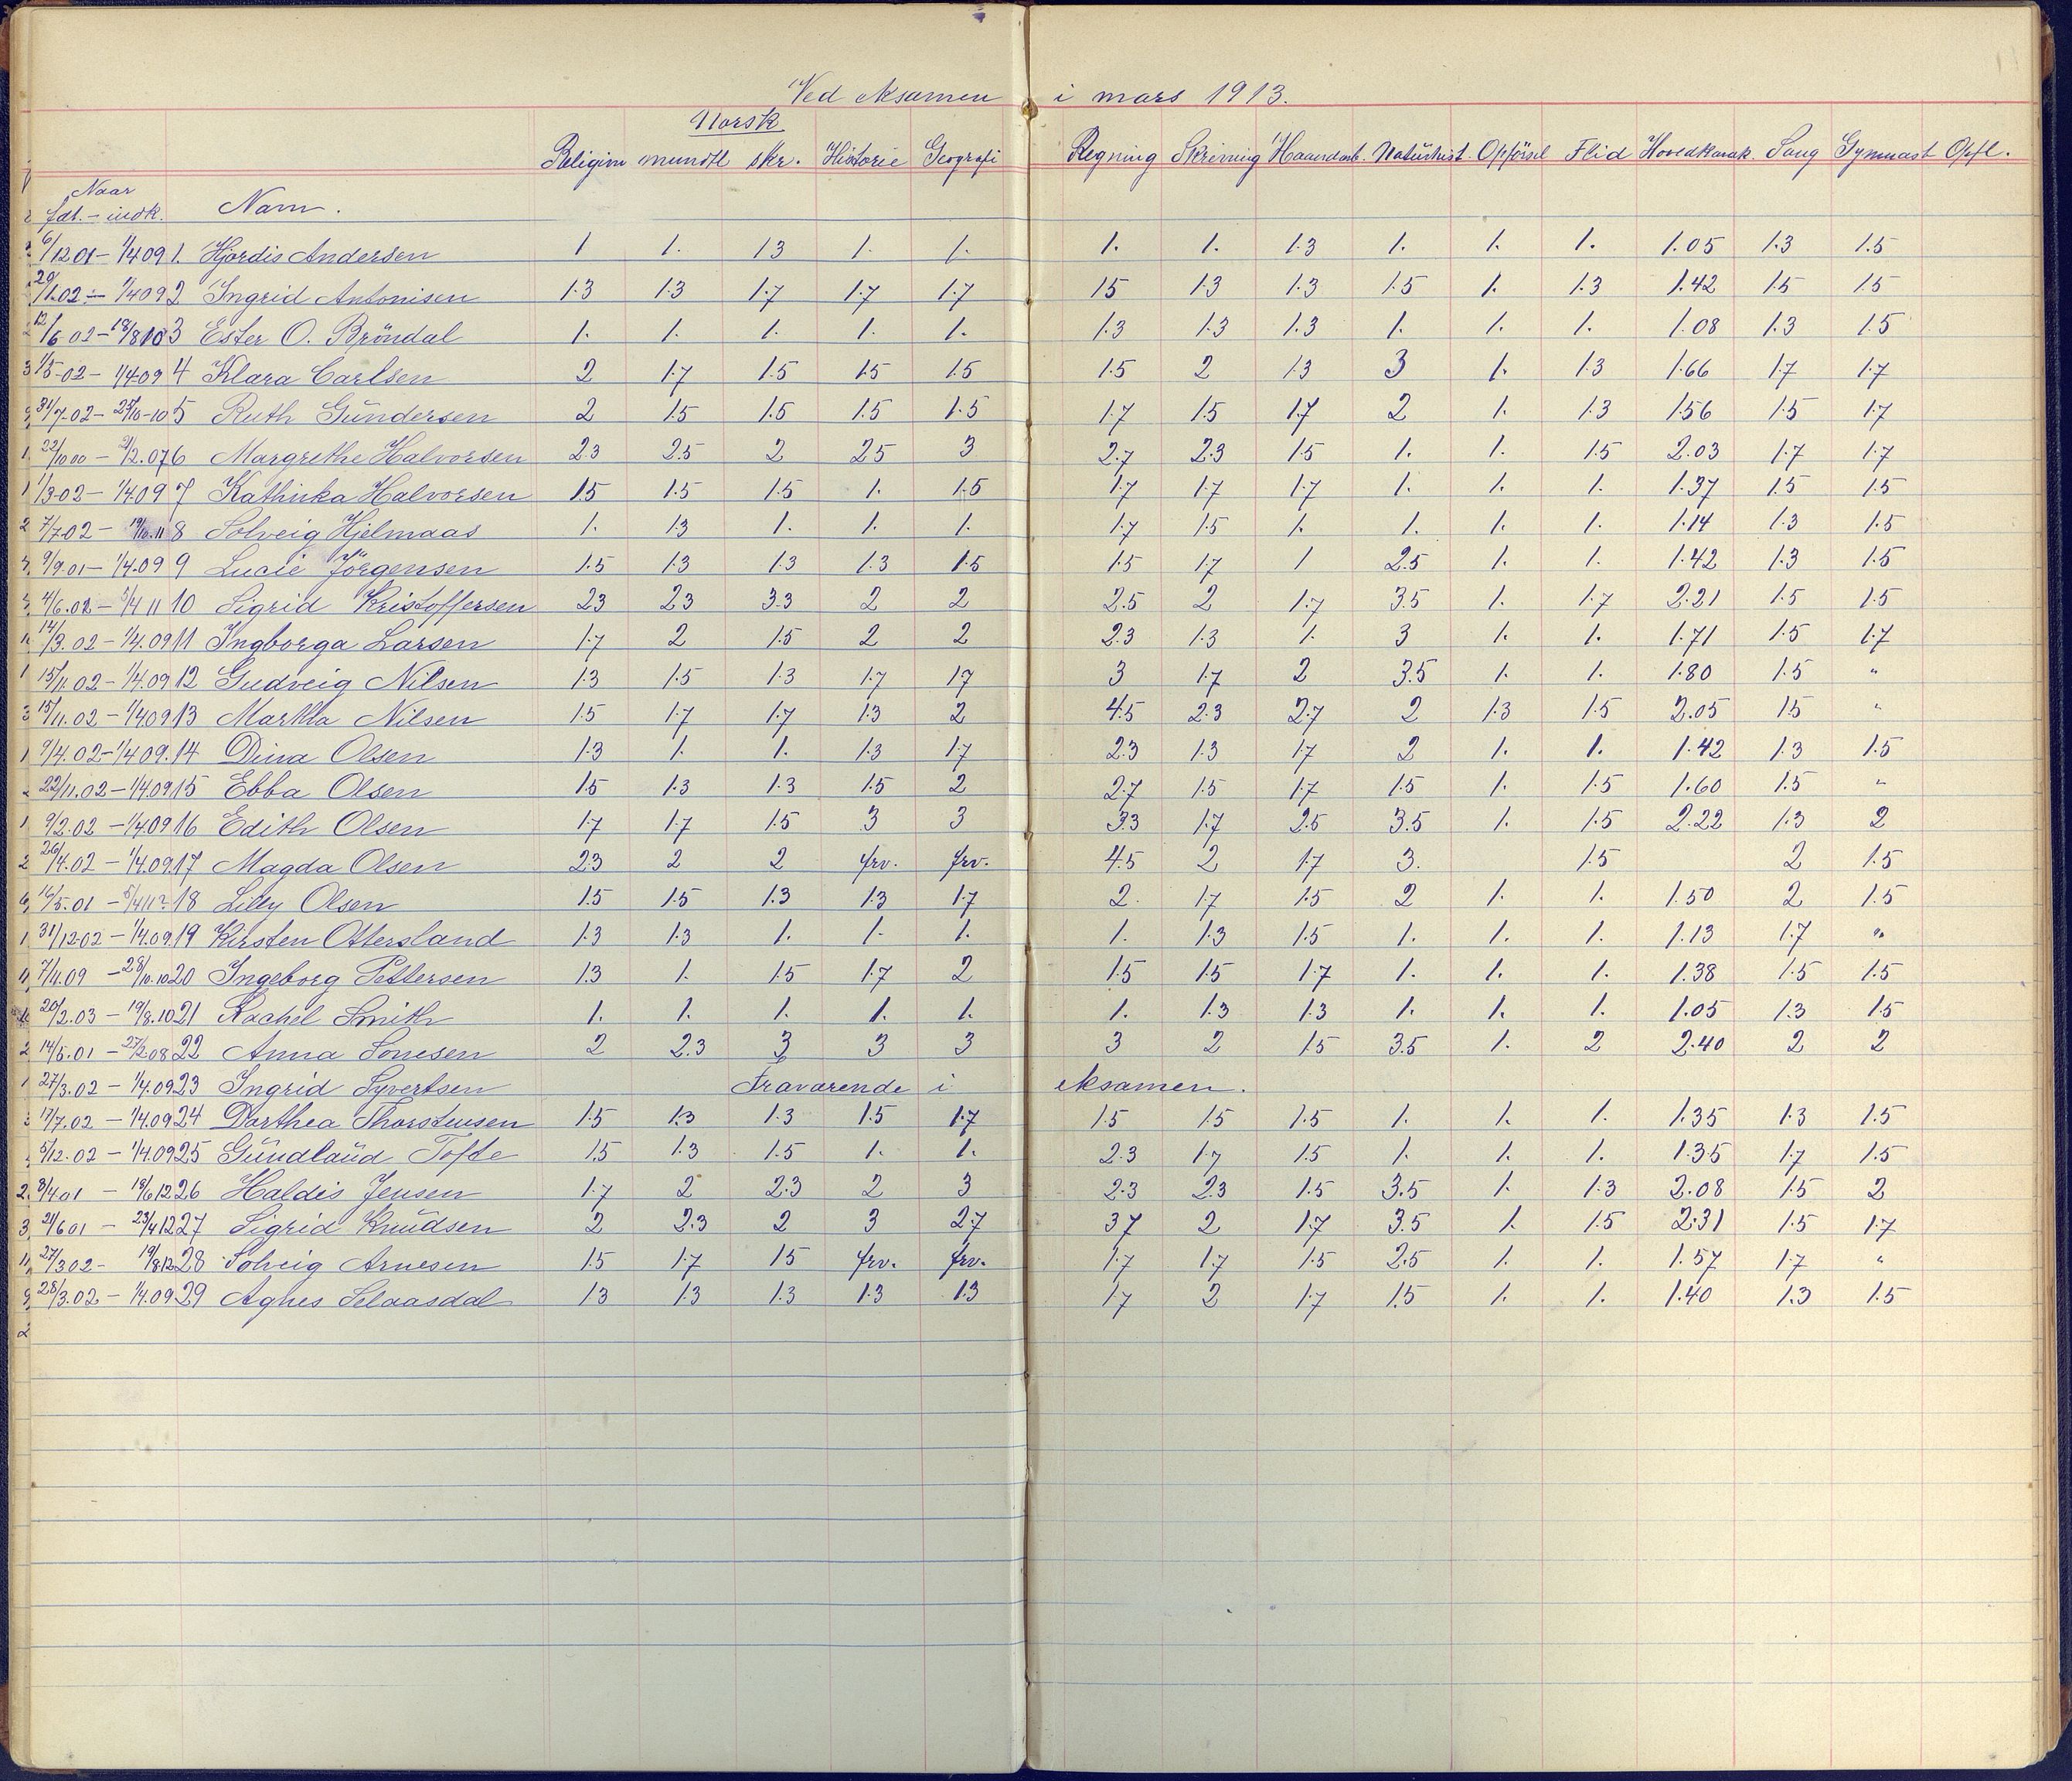 Ved eksamen i mars 1913.
Norsk
Religion mundtl skr. Historie Geografi Regning Skrivning Haandarb. Naturhist. Opförsel Flid Hovedkarak. Sang Gymnast Opfl.
Naar
föd. - indk. Navn.
6/12 01 - 1/4 09 1. Hjördis Andersen 1 1. 1.3 1. 1. 1. 1. 1.3 1. 1. 1. 1.05 1.3 1.5
29/1.02 - 1/4 09 2 Ingrid Antonisen 1.3 1.3 1.7 1.7 1.7 1.5 1.3 1.3 1.5 1. 1.3 1.42 1.5 1.5
12/6 02 - 18/8 10 3 Ester O. Bröndal 1. 1. 1. 1. 1. 1.3 1.3 1.3 1. 1. 1. 1.08 1.3 1.5
1/5-02 - 1/4-09 4 Klara Carlsen 2 1.7 1.5 1.5 1.5 1.5 2 1.3 3 1. 1.3 1.66 1.7 1.7
31/7-02 - 25/10-10 5 Ruth Gündersen 2 1.5 1.5 1.5 1.5 1.7 1.5 1.7 2 1. 1.3 1.56 1.5 1.7
22/10 00 - 2/2.07 6 Margrethe Halvorsen 2.3 2.5 2 2.5 3 2.7 2.3 1.5 1. 1. 1.5 2.03 1.7 1.7
1/3-02 - 1/4 09 7 Kathinka Halvorsen 1.5 1.5 1.5 1. 1.5 1.7 1.7 1.7 1. 1. 1. 1.37 1.5 1.5
7/7 02 - 19/10.11 8 Solveig Hjelmaas 1. 1.3 1. 1. 1. 1.7 1.5 1. 1. 1. 1. 1.14 1.3 1.5
9/9.01 - 1/4.09 9 Lucie Jörgensen 1.5 1.3 1.3 1.3 1.5 1.5 1.7 1 2.5 1. 1. 1.42 1.3 1.5
4/6.02 - 5/4 11 10 Sigrid Kristoffersen 2.3 2.3 3.3 2 2 2.5 2 1.7 3.5 1. 1.7 2.21 1.5 1.5
14/3.02 - 1/4.09 11 Ingborga Larsen 1.7 2 1.5 2 2 2.3 1.3 1. 3 1. 1. 1.71 1.5 1.7
15/11.02 - 1/4.09 12 Gudveig Nilsen 1.3 1.5 1.3 1.7 1.7 3 1.7 2 3.5 1. 1. 1.80 1.5 "
15/11.02 - 1/4 09 13 Martha Nilsen 1.5 1.7 1.7 1.3 2 4.5 2.3 2.7 2 1.3 1.5 2.05 1.5 "
9/4.02 - 1/4 09. 14 Dina Olsen 1.3 1. 1. 1.3 1.7 2.3 1.3 1.7 2 1. 1. 1.42 1.3 1.5
22/11.02 - 1/4 09 15 Ebba Olsen 1.5 1.3 1.3 1.5 2 2.7 1.5 1.7 1.5 1. 1.5 1.60 1.5 "
9/2.02 - 1/4.09 16 Edith Olsen 1.7 1.7 1.5 3 3 3.3 1.7 2.5 3.5 1. 1.5 2.22 1.3 2
26/4.02 - 1/4.09 17 Magda Olsen 2.3 2 2 frv. frv. 4.5 2 1.7 3. 1.5 2 1.5
16/5.01 - 5/4 11? 18 Lilly Olsen 1.5 1.5 1.3 1.3 1.7 2. 1.7 1.5 2 1. 1. 1.50 2 1.5
31/12-02 - 1/4.09 19 Kirsten Ottersland 1.3 1.3 1. 1. 1. 1. 1.3 1.5 1. 1. 1. 1.13 1.7 "
7/11.09 - 28/10.10 20 Ingeborg Pettersen 1.3 1. 1.5 1.7 2 1.5 1.5 1.7 1. 1. 1. 1.38 1.5 1.5
20/2.03 - 19/8.10 21 Rachel Smith 1. 1. 1. 1. 1. 1. 1.3 1.3 1. 1. 1. 1.05 1.3 1.5
14/5.01 - 27/2 08 22 Anna Sonesen 2 2.3 3 3 3 3 2 1.5 3.5 1. 2 2.40 2 2
27/3.02 - 1/4.09 23 Ingrid Syvertsen Fraværende i eksamen.
17/7.02 - 1/4.09 24 Dorthea Thorstensen 1.5 1.3 1.3 1.5 1.7 1.5 1.5 1.5 1. 1. 1. 1.35 1.3 1.5
5/12.02 - 1/4.09 25 Gündlaüd Tofte 1.5 1.3 1.5 1. 1. 2.3 1.7 1.5 1. 1. 1. 1.35 1.7 1.5
8/4 01 - 18/6 12 26 Haldis Jensen 1.7 2 2.3 2 3 2.3 2.3 1.5 3.5 1. 1.3 2.08 1.5 2
21/6 01 - 23/4 12 27 Sigrid Knüdsen 2 2.3 2 3 2.7 3.7 2 1.7 3.5 1. 1.5 2.31 1.5 1.7
27/3 02 - 19/8.12 28 Solveig Arnesen 1.5 1.7 1.5 frv. frv. 1.7 1.7 1.5 2.5 1. 1. 1.57 1.7 "
28/3.02 - 1/4.09 29 Aghes Selaasdal 1.3 1.3 1.3 1.3 1.3 1.7 2 1.7 1.5 1. 1. 1.40 1.3 1.5